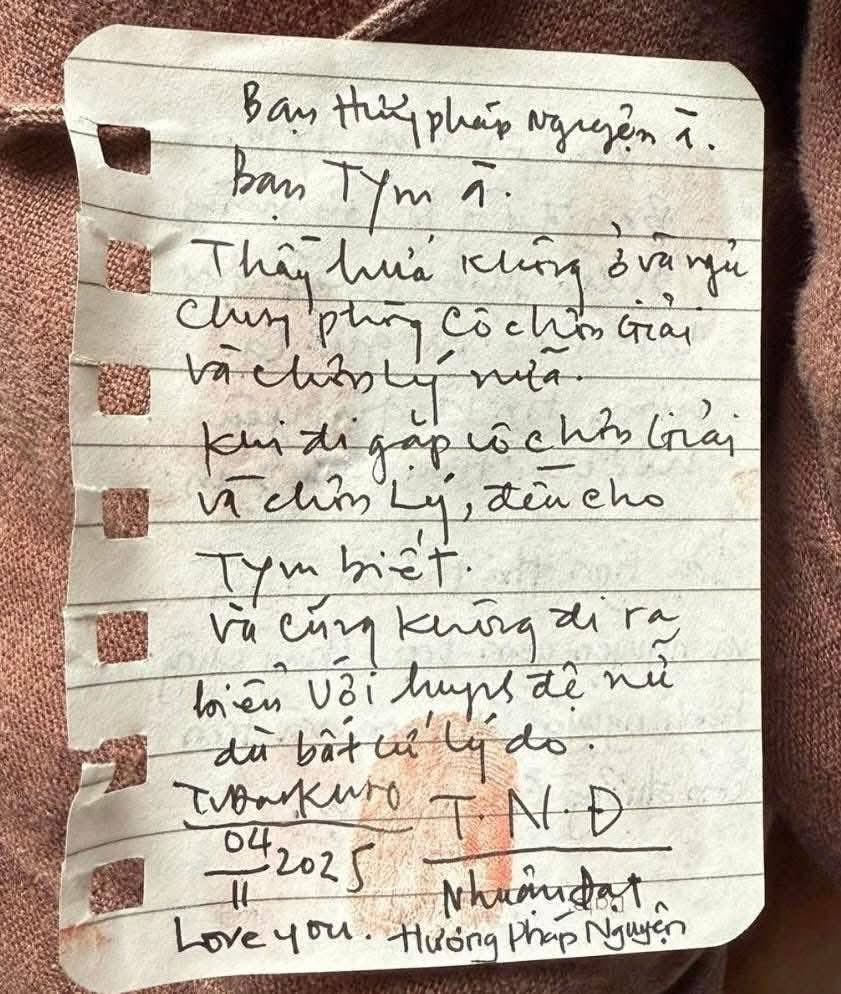 Bạn Hương pháp Nguyện à.
Bạn Tym à.
Thầy hứa không ở và ngủ
chung phòng cô chơn Giải
và chơn Lý nữa.
Khi đi gặp cô chơn Giải
và chơn Lý, đều cho
Tym biết.
Và cũng không đi ra
biển với huynh đệ nữ
dù bất cứ lý do.
T.N.Đ
04
11 2025
Nhuận Đạt
Love you. Hương Pháp Nguyện